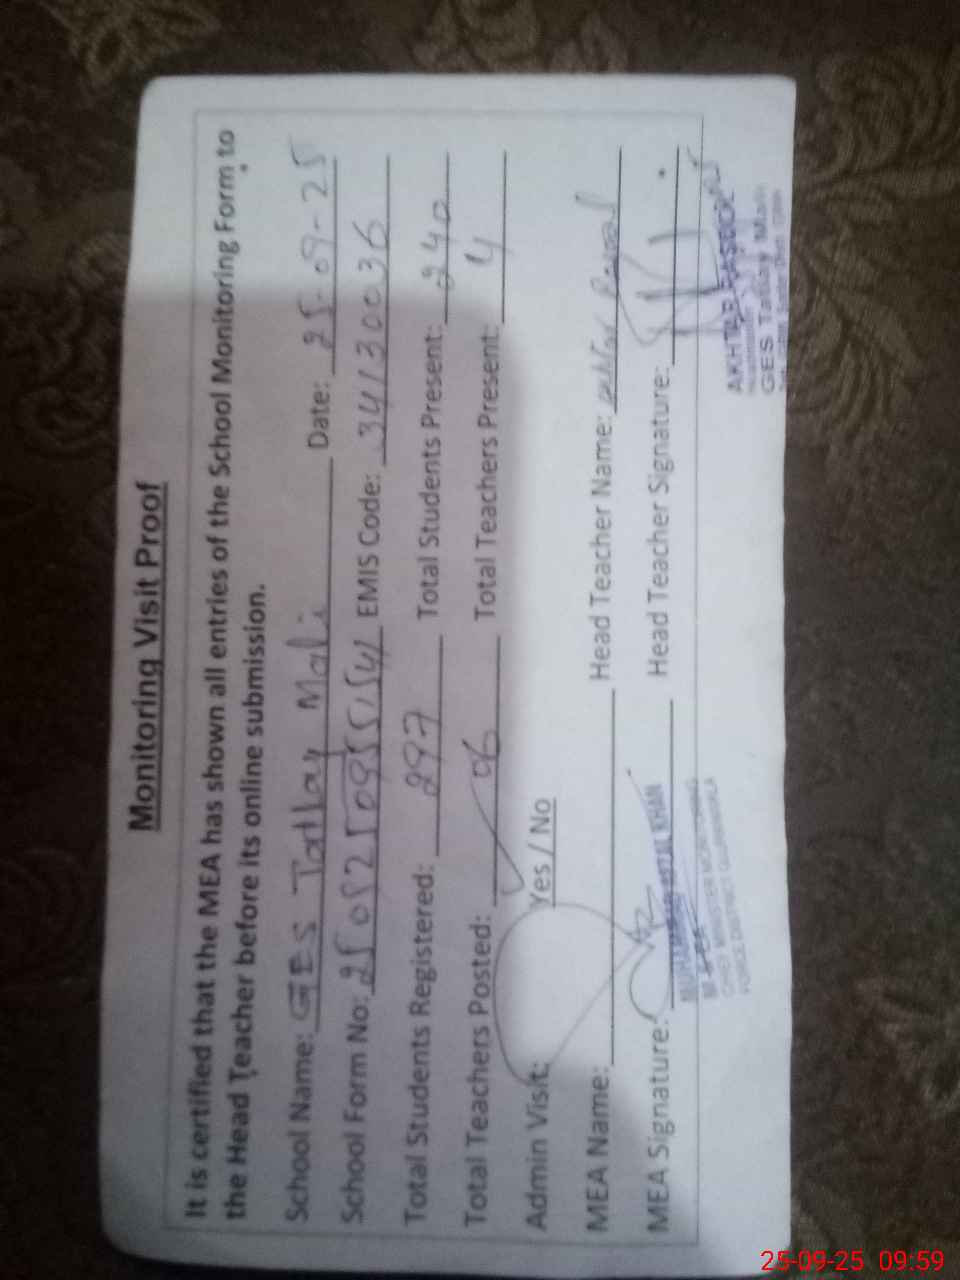 Monitoring Visit Proof
It is certified that the MEA has shown all entries of the School Monitoring Form to
the Head Teacher before its online submission.
School Name: GES Tatlay Mali Date: 25-09-25
School Form No: EMIS Code: 34130036
Total Students Registered: 297 Total Students Present: 240
Total Teachers Posted: 06 Total Teachers Present: 4
Admin Visit: Yes / No
MEA Name: Head Teacher Name:
MEA Signature: Head Teacher Signature:
MUHAMMAD KHAN
CHIEF MINISTER MONITORING
FORCE DISTRICT GUJRANWALA
AKHTAR RASOOL
Headmaster
GES Tatlay Mali
25-09-25 09:59